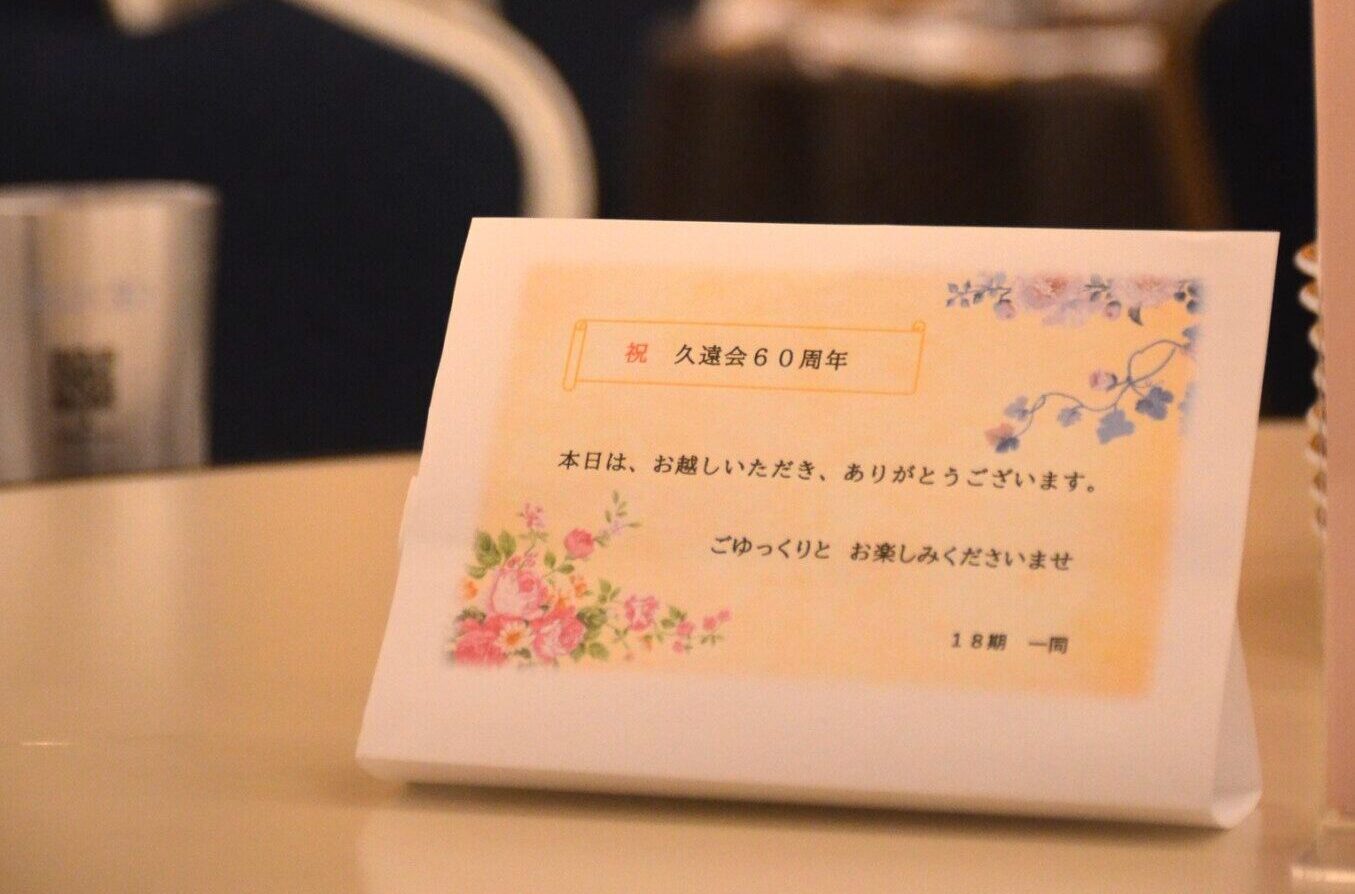 祝 久遠会60周年
本日は、お越しいただき、ありがとうございます。
ごゆっくりと お楽しみくださいませ
18期 一同